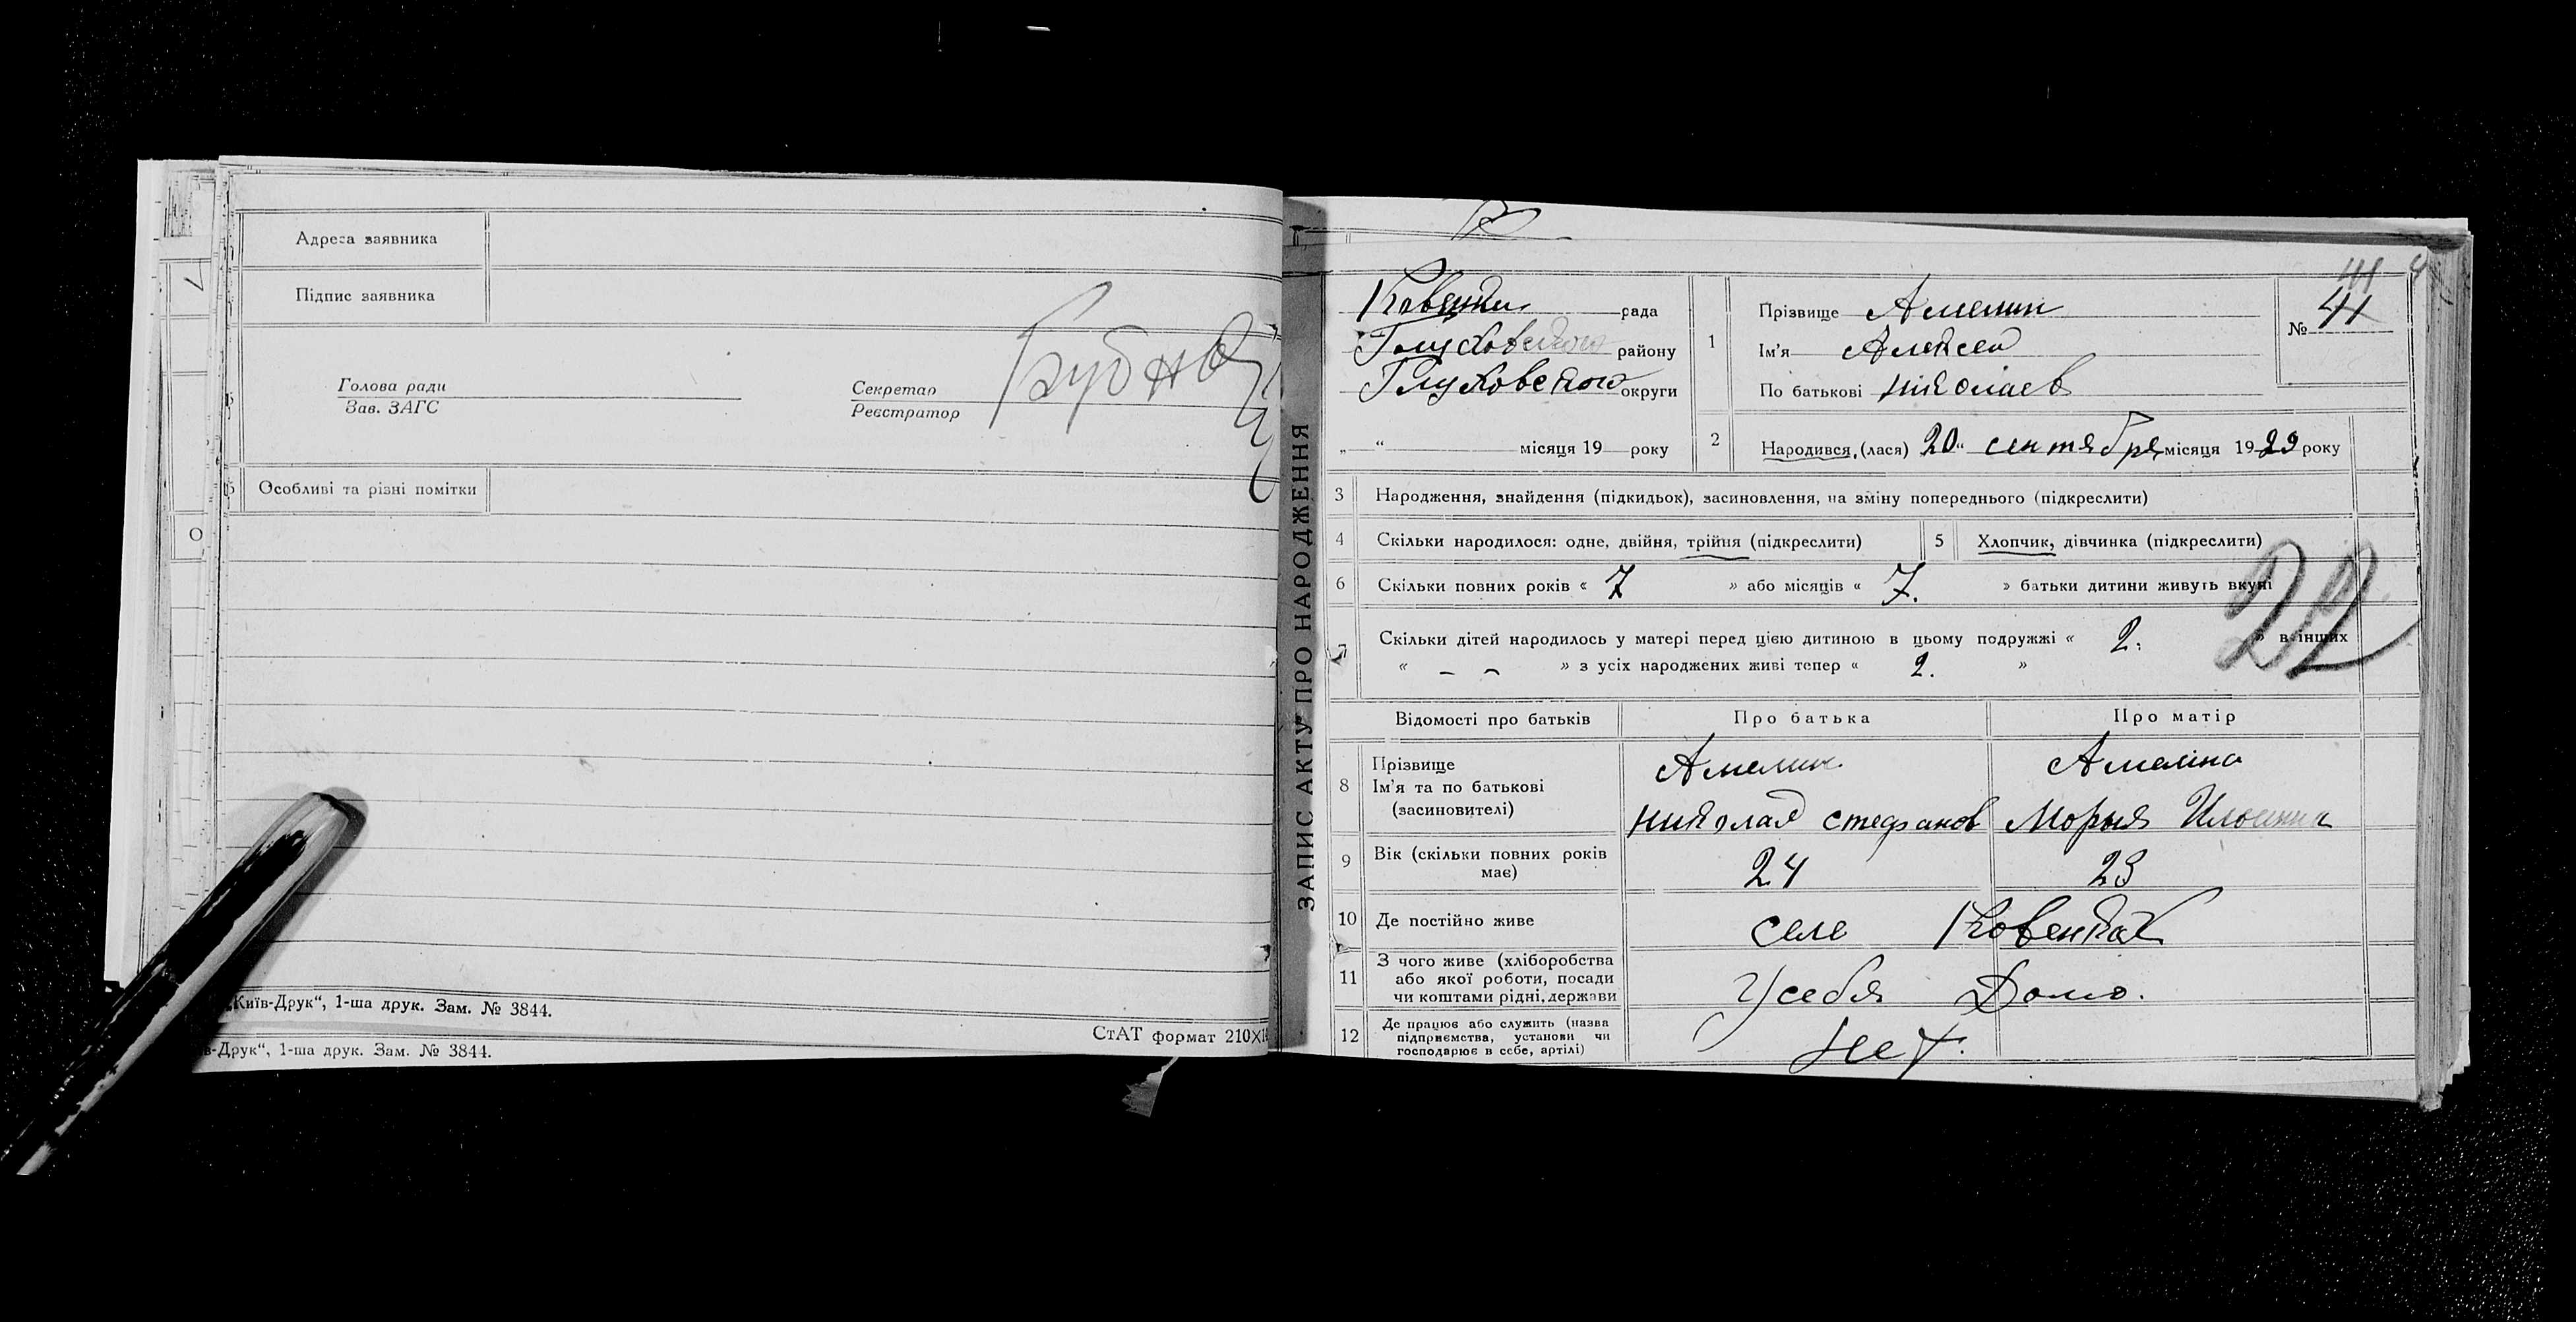 Адреса заявника
Підпис заявника
Голова ради
Зав. ЗАГС
Секретар
Реєстратор
Бубнов
Особливі та різні помітки
„Київ-Друк“, 1-ша друк. Зам. № 3844.
СтАТ формат 210×14
в-Друк“, 1-ша друк. Зам. № 3844.
ЗАПИС АКТУ ПРО НАРОДЖЕННЯ
Ковенки рада
Глуховского району
Глуховского округи
„ “ місяця 19 року
1
Прізвище Амелин
Ім'я Алексей
По батькові николаев
№ 41
41
2 Народився, (лася) 20“ сентября місяця 1929 року
3 Народження, знайдення (підкидьок), засиновлення, на зміну попереднього (підкреслити)
4 Скільки народилося: одне, двійня, трійня (підкреслити)
5 Хлопчик, дівчинка (підкреслити)
6 Скільки повних років « 7 » або місяців « 7. » батьки дитини живуть вкупі
22
7 Скільки дітей народилось у матері перед цією дитиною в цьому подружжі « 2. » в інших
« – – » з усіх народжених живі тепер « 2. »
Відомості про батьків Про батька Про матір
8 Прізвище
Ім'я та по батькові
(засиновителі)
Амелин Амеліна
николай стефанов Морыя
9 Вік (скільки повних років
має)
24 23
10 Де постійно живе селе Ковенках
11 З чого живе (хліборобства
або якої роботи, посади
чи коштами рідні, держави
Усебя Домо.
12 Де працює або служить (назва
підприємства, установи чи
господарює в себе, артілі)
Нет.